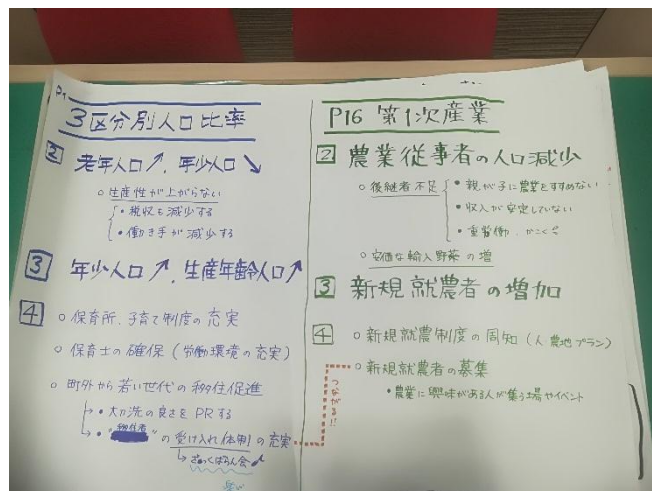 P1
3区分別人口比率
2 老年人口↗、年少人口↘
○生産性が上がらない
・税収も減少する
・働き手が減少する
3 年少人口↗、生産年齢人口↗
4 ○保育所、子育て制度の充実
○保育士の確保(労働環境の充実)
○町外から若い世代の移住促進
→・大洗の良さをPRする
→・"移住者"の受け入れ体制の充実
→ざっくばらん会
P16 第1次産業
2 農業従事者の人口減少
○後継者不足
・親が子に農業をすすめない
・収入が安定していない
・重労働、かこくさ
○安価な輸入野菜の増
3 新規就農者の増加
4 ○新規就農制度の周知(人・農地プラン)
○新規就農者の募集
・農業に興味がある人が集う場やイベント
つながる!!